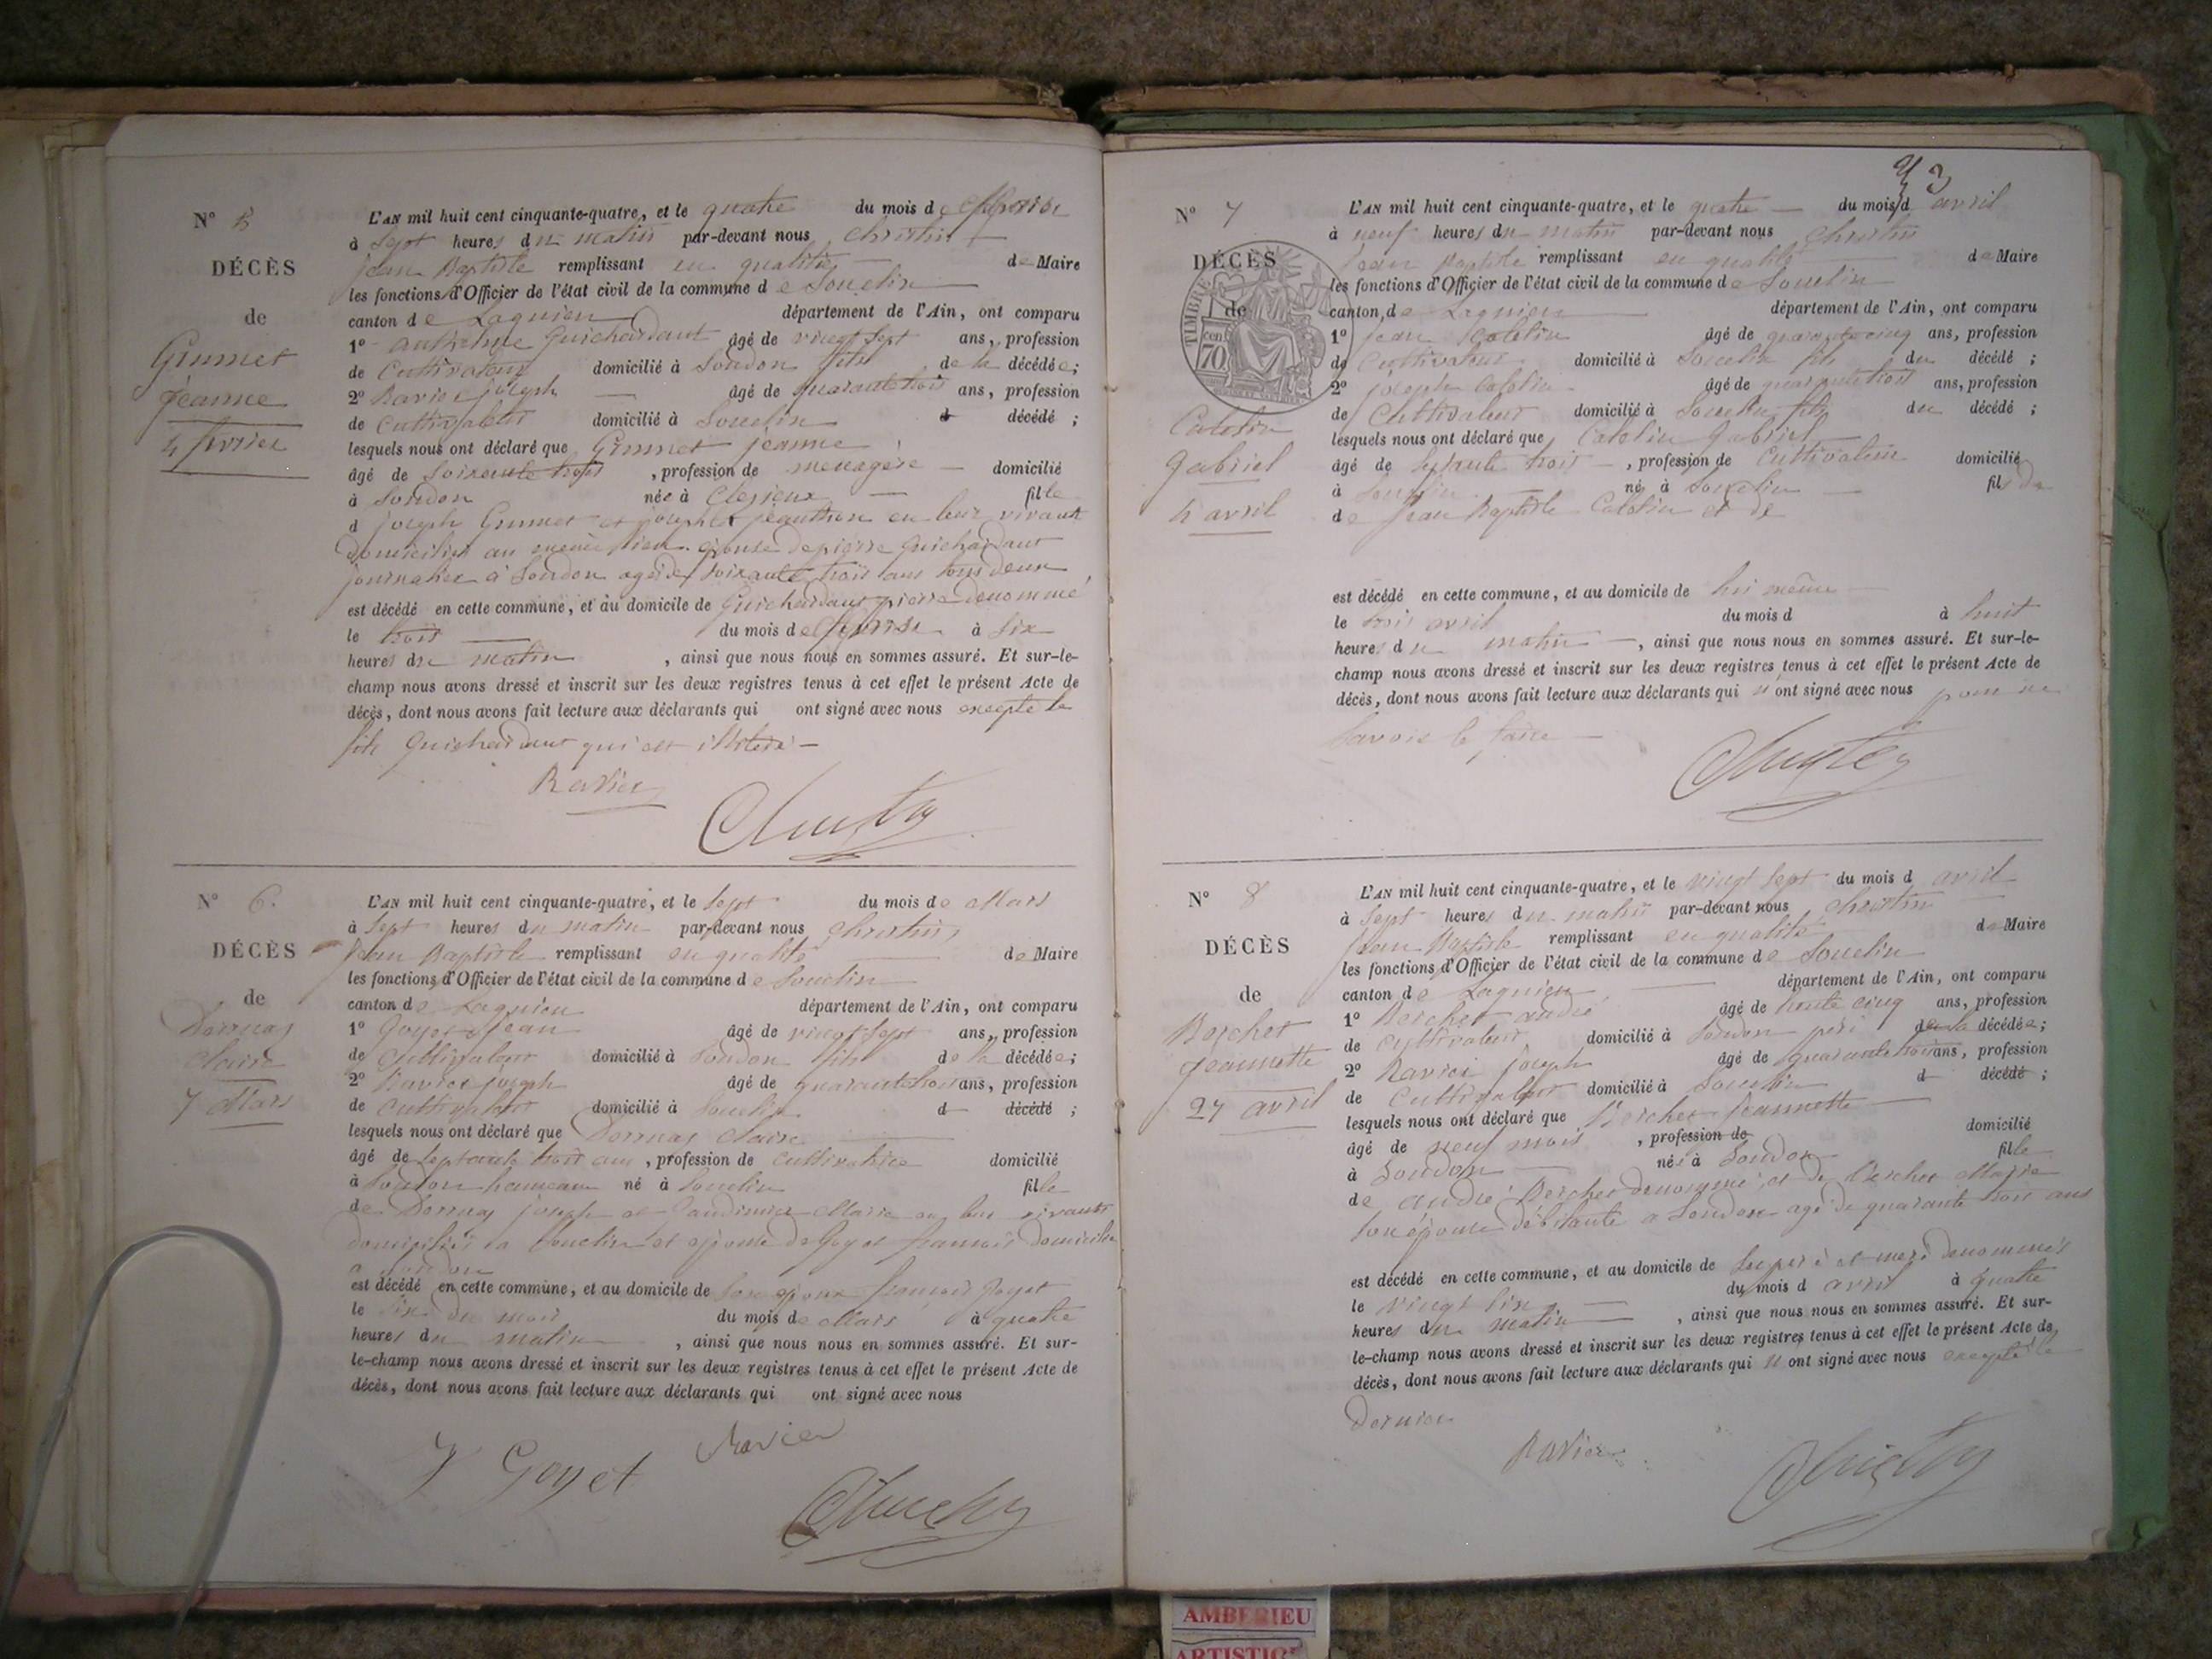 N° 5
DÉCÈS
de
Grumet
Jeanne
4 février
L'AN mil huit cent cinquante-quatre, et le quatre du mois de février
à Sept heures du matin par-devant nous Christin
Jean Baptiste remplissant en qualité de Maire
les fonctions d'Officier de l'état civil de la commune de Souclin
canton de Lagnieu département de l'Ain, ont comparu
1° anthelme Guichardant âgé de vingt Sept ans, profession
de Cultivateur domicilié à Soudon fils de la décédée;
2° Ravier joseph âgé de quarante trois ans, profession
de Cultivateur domicilié à Souclin d décédé ;
lesquels nous ont déclaré que Grumet jeanne
âgé de Soixante trois , profession de menagère domicilié
à Soudon née à Clezieux fille
d joseph Grumet et en leur vivant
domiciliés au même lieu. épouse de pierre Guichardant
journalier à Soudon agé de Soixante trois ans tous deux
est décédé en cette commune, et au domicile de Guichardant pierre denommé
le trois du mois de février à Six
heures du matin , ainsi que nous nous en sommes assuré. Et sur-le-
champ nous avons dressé et inscrit sur les deux registres tenus à cet effet le présent Acte de
décès, dont nous avons fait lecture aux déclarants qui ont signé avec nous excepté le
fils Guichardant qui est
Ravier
N° 6.
DÉCÈS
de
Dornay
Claire
7 Mars
L'AN mil huit cent cinquante-quatre, et le Sept du mois de Mars
à Sept heures du matin par-devant nous Christin
Jean Baptiste remplissant en qualité de Maire
les fonctions d'Officier de l'état civil de la commune de Souclin
canton de Lagnieu département de l'Ain, ont comparu
1° Goyet Jean âgé de vingt Sept ans, profession
de Cultivateur domicilié à Soudon fils de la décédée;
2° Ravier joseph âgé de quarante trois ans, profession
de Cultivateur domicilié à Souclin d décédé ;
lesquels nous ont déclaré que Dornay Claire
âgé de Septante trois ans , profession de Cultivatrice domicilié
à Soudon hameau né à Souclin fille
de Dornay joseph et Marie en leur vivant
domiciliés à Souclin et épouse de Goyet françois domicilié
a Soudon
est décédé en cette commune, et au domicile de Son époux françois Goyet
le Six du mois du mois de Mars à quatre
heures du matin , ainsi que nous nous en sommes assuré. Et sur-
le-champ nous avons dressé et inscrit sur les deux registres tenus à cet effet le présent Acte de
décès, dont nous avons fait lecture aux déclarants qui ont signé avec nous
J Goyet Ravier
3
N° 7
DÉCÈS
de
TIMBRE
70 cen
Catelin
Gabriel
4 avril
L'AN mil huit cent cinquante-quatre, et le quatre du mois d avril
à neuf heures du matin par-devant nous Christin
Jean Baptiste remplissant en qualité de Maire
les fonctions d'Officier de l'état civil de la commune de Souclin
canton de Lagnieu département de l'Ain, ont comparu
1° Jean Catelin âgé de quarante cinq ans, profession
de Cultivateur domicilié à Souclin fils du décédé ;
2° joseph Catelin âgé de quarante trois ans, profession
de Cultivateur domicilié à Souclin fils du décédé ;
lesquels nous ont déclaré que Catelin Gabriel
âgé de Septante trois , profession de Cultivateur domicilié
à Souclin né à Souclin fils de
de Jean Baptiste Catelin et de
est décédé en cette commune, et au domicile de lui même
le trois avril du mois d à huit
heures du matin , ainsi que nous nous en sommes assuré. Et sur-le-
champ nous avons dressé et inscrit sur les deux registres tenus à cet effet le présent Acte de
décès, dont nous avons fait lecture aux déclarants qui n'ont signé avec nous pour ne
Savoir le faire
N° 8
DÉCÈS
de
Berchet
Jeannette
27 avril
L'AN mil huit cent cinquante-quatre, et le vingt Sept du mois d avril
à Sept heures du matin par-devant nous Christin
Jean Baptiste remplissant en qualité de Maire
les fonctions d'Officier de l'état civil de la commune de Souclin
canton de Lagnieu département de l'Ain, ont comparu
1° Berchet andré âgé de trente cinq ans, profession
de Cultivateur domicilié à Soudon père de la décédée;
2° Ravier joseph âgé de quarante trois ans, profession
de Cultivateur domicilié à Souclin d décédé ;
lesquels nous ont déclaré que Berchet Jeannette
âgé de neuf mois , profession de domicilié
à Soudon née à Soudon fille
de andré Berchet denommé, et de Berchet Marie
Son épouse débitante a Soudon agé de quarante trois ans
est décédé en cette commune, et au domicile de Ses père et mère denommés
le vingt Six du mois d avril à quatre
heures du matin , ainsi que nous nous en sommes assuré. Et sur-
le-champ nous avons dressé et inscrit sur les deux registres tenus à cet effet le présent Acte de
décès, dont nous avons fait lecture aux déclarants qui n'ont signé avec nous excepté le
Dernier
Ravier
AMBERIEU